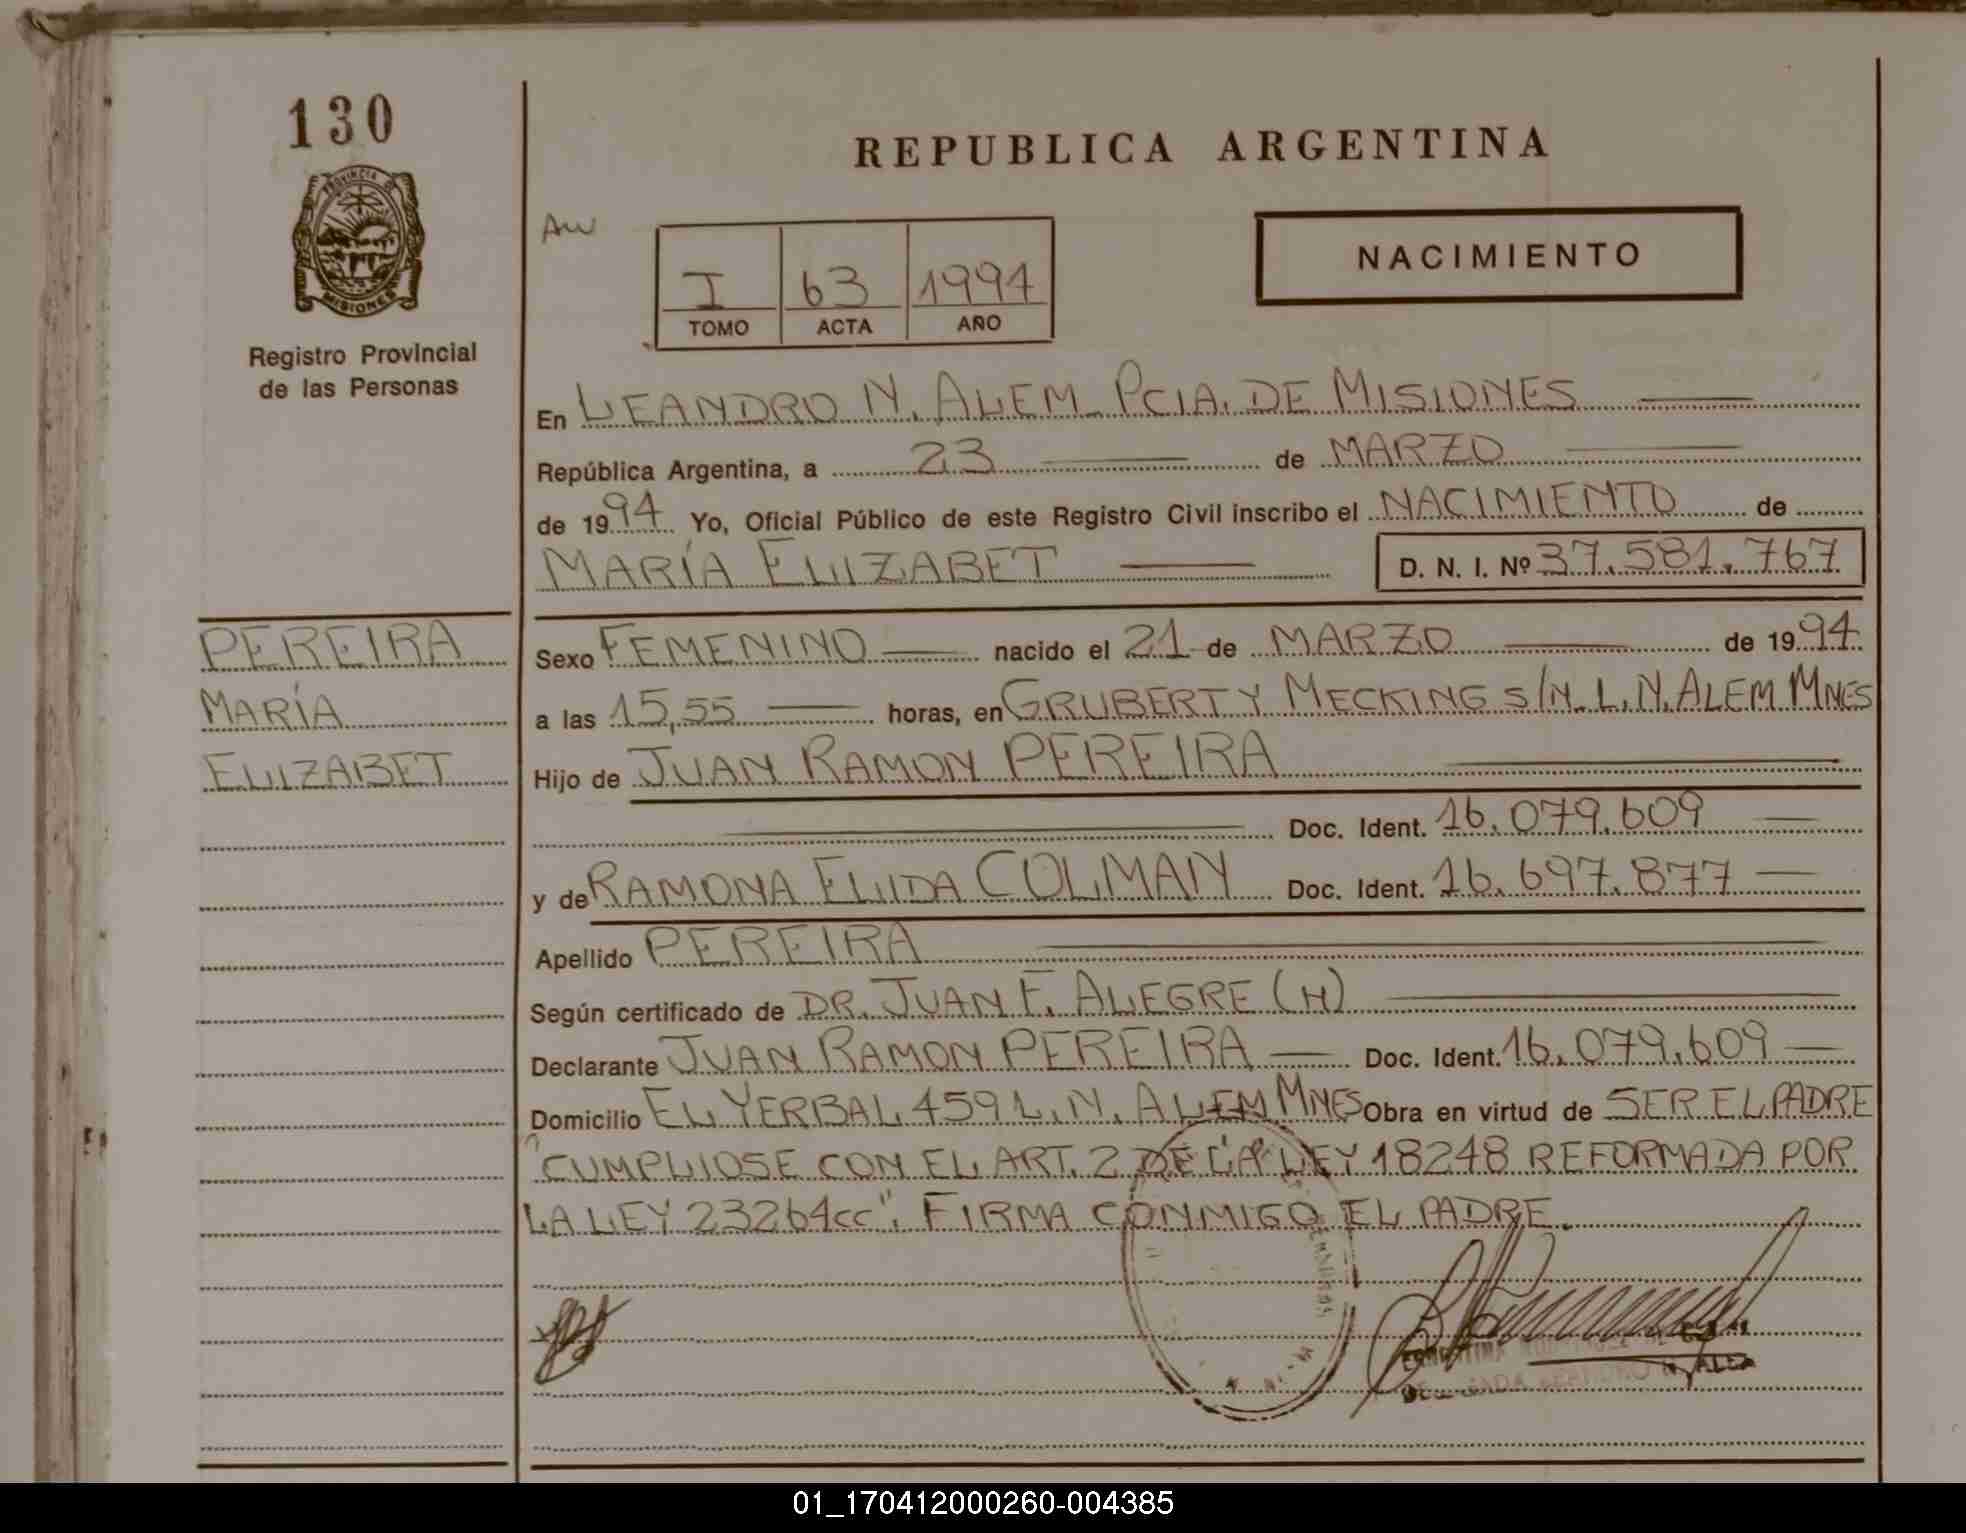 130
PROVINCIA DE
MISIONES
Registro Provincial
de las Personas
REPUBLICA ARGENTINA
AW
I 63 1994
TOMO ACTA AÑO
NACIMIENTO
En LEANDRO N. ALEM PCIA. DE MISIONES
República Argentina, a 23 de MARZO
de 1994 Yo, Oficial Público de este Registro Civil inscribo el NACIMIENTO de
MARÍA ELIZABET D. N. I. Nº 37.581.767
PEREIRA
MARÍA
ELIZABET
Sexo FEMENINO nacido el 21 de MARZO de 1994
a las 15,55 horas, en GRUBERT Y MECKING S/N. L. N. ALEM MNES
Hijo de JUAN RAMON PEREIRA
Doc. Ident. 16.079.609
y de RAMONA ELIDA COLMAN Doc. Ident. 16.697.877
Apellido PEREIRA
Según certificado de DR. JUAN F. ALEGRE (H)
Declarante JUAN RAMON PEREIRA Doc. Ident. 16.079.609
Domicilio EL YERBAL 459 L. N. ALEM MNES Obra en virtud de SER EL PADRE
"CUMPLIOSE CON EL ART. 2 DE LA LEY 18248 REFORMADA POR
LA LEY 23264cc". FIRMA CONMIGO EL PADRE.
01_170412000260-004385